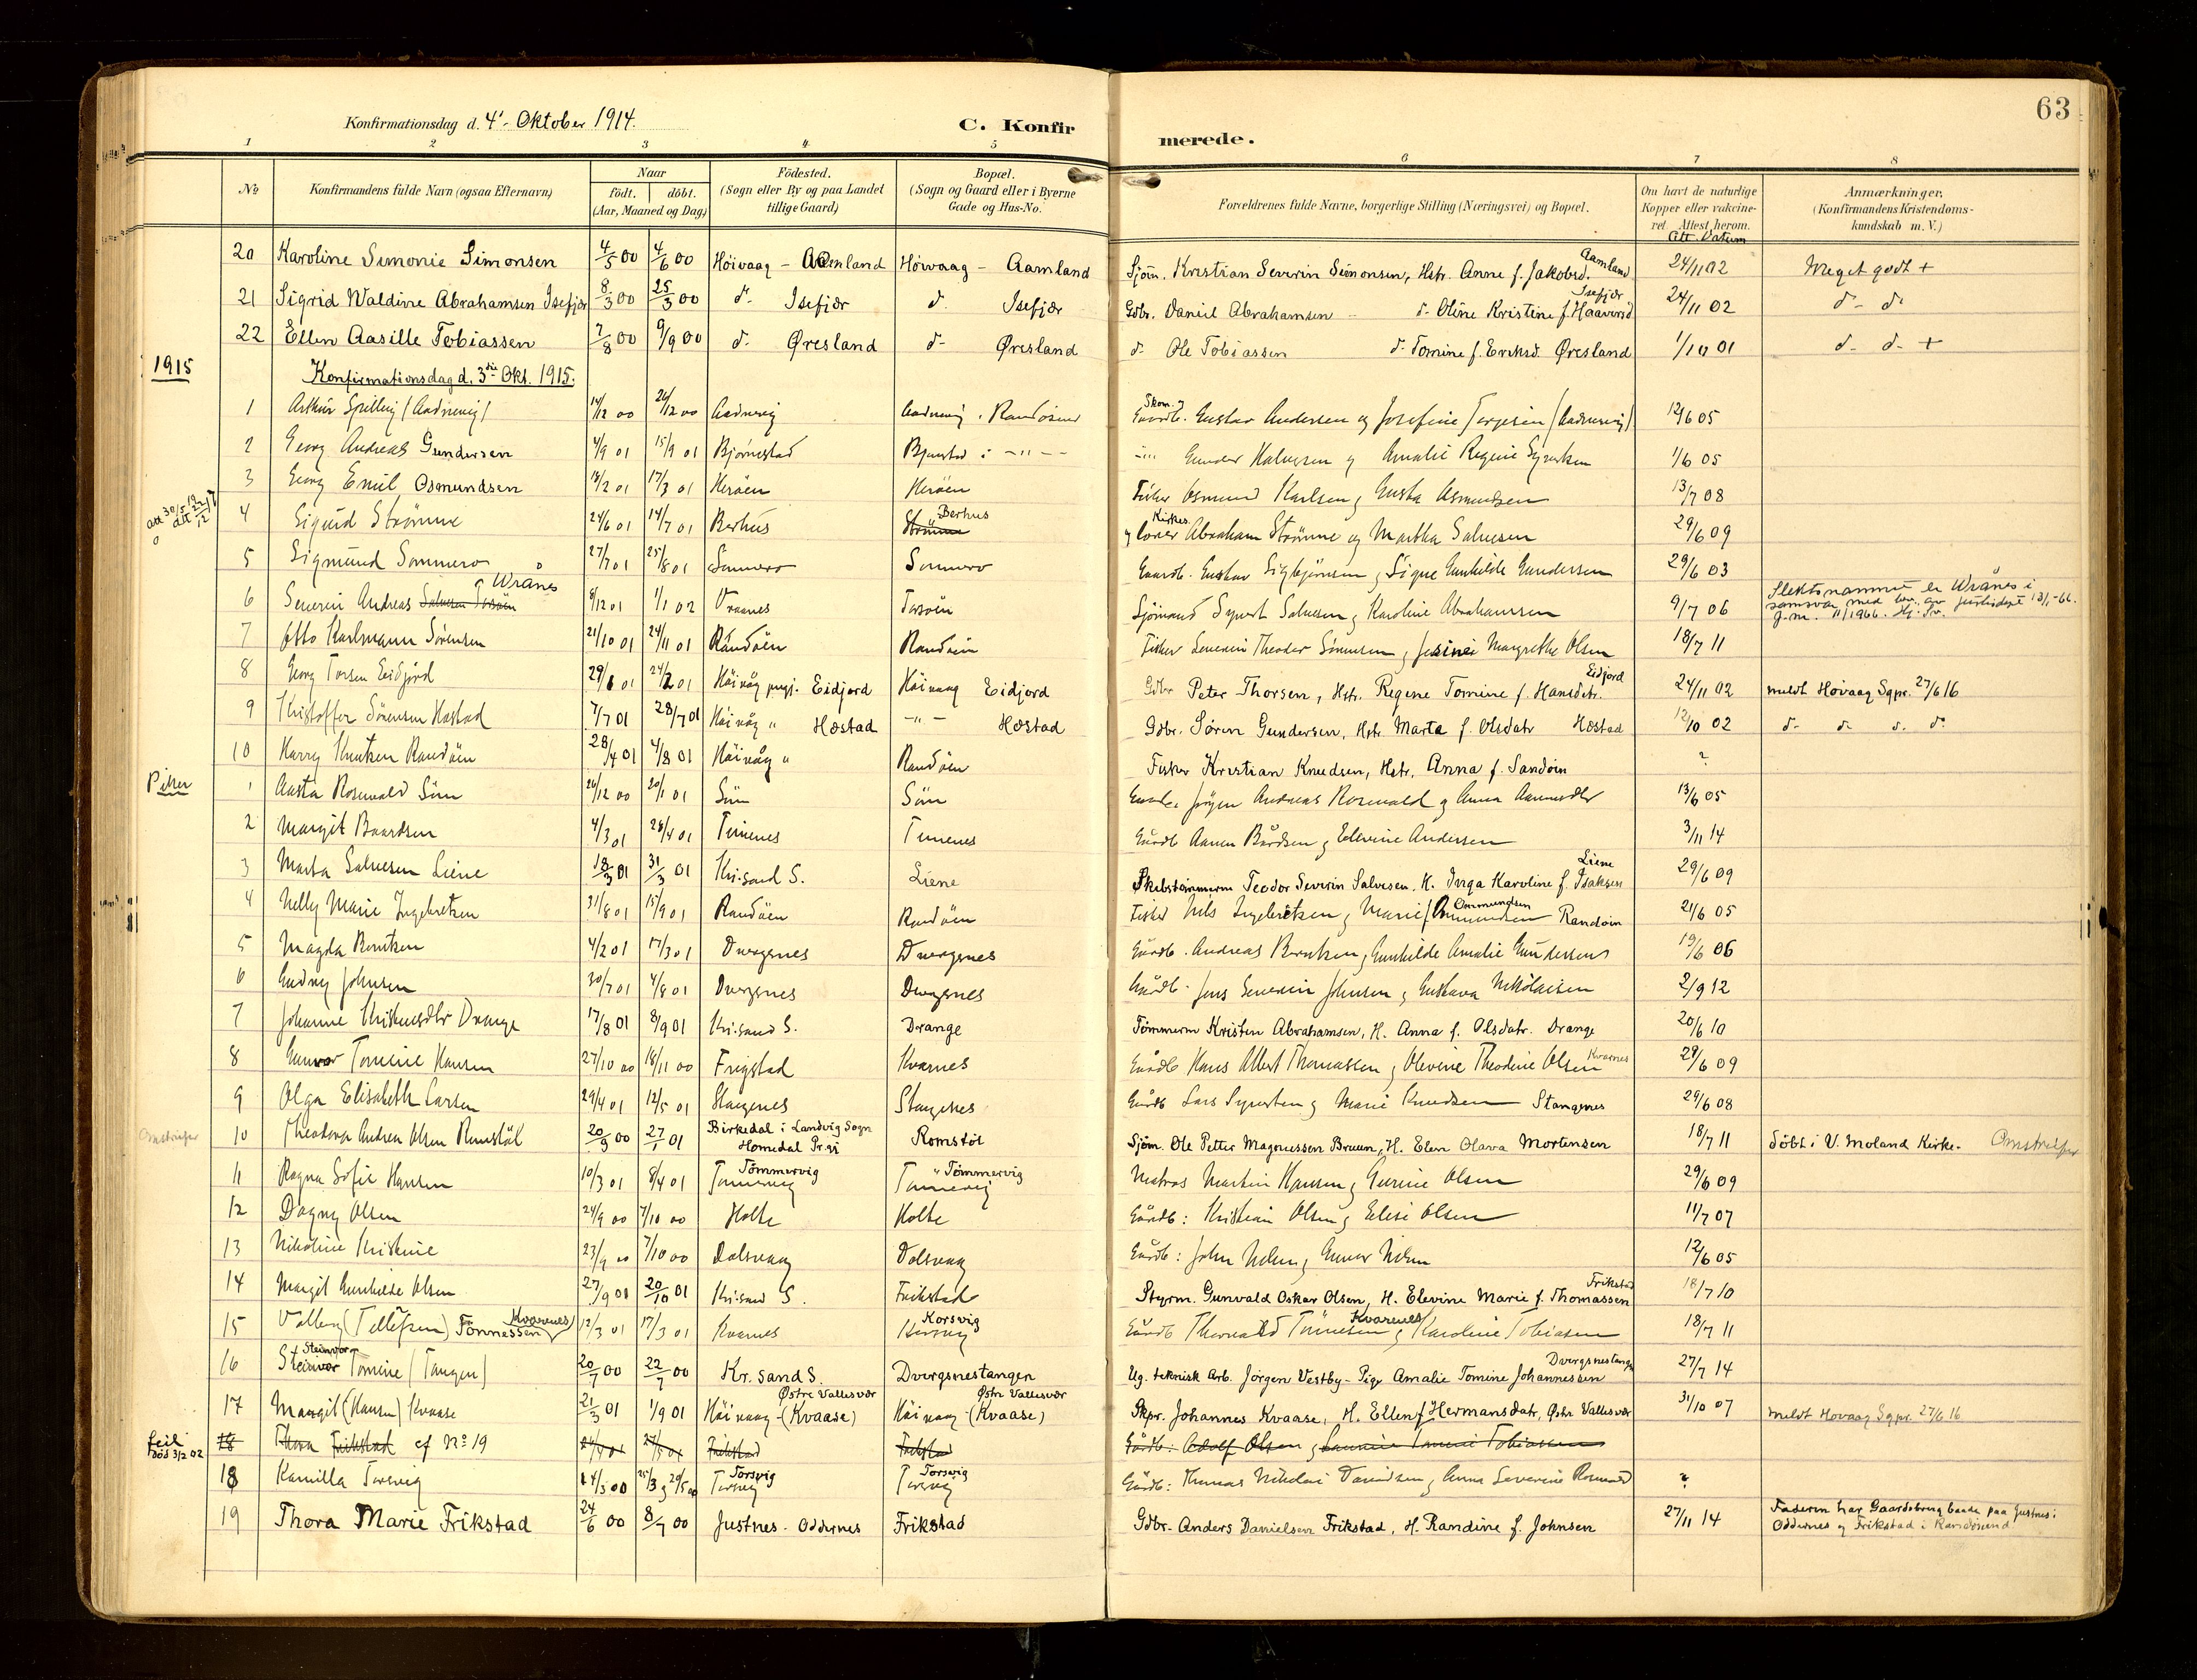 63
Konfirmationsdag d. 4' Oktober 1914.
C. Konfirmerede.
1 2 3 4 5 6 7 8
No
Konfirmandens fulde Navn (ogsaa Efternavn)
Naar födt. döbt. (Aar, Maaned og Dag)
Födested. (Sogn eller By og paa Landet tillige Gaard)
Bopæl. (Sogn og Gaard eller i Byerne Gade og Hus-No.
Forældrenes fulde Navne, borgerlige Stilling (Næringsvei) og Bopæl.
Om havt de naturlige Kopper eller vakcineret. Attest herom.
Att. Datum
Anmærkninger, (Konfirmandens Kristendomskundskab m. V.)
20 Karoline Simonie Simonsen 4/5 00 4/6 00 Höivaag - Aamland Höivaag - Aamland Sjöm. Kristian Severin Simonsen, Hstr. Anne f. Jakobsd. Aamland 24/11 02 Meget godt +
21 Sigrid Waldine Abrahamsen Isefjær 8/3 00 25/3 00 d. Isefjær d. Isefjær Gdbr. Daniel Abrahamsen - d. Oline Kristine f. Haavorsd Isefjær 24/11 02 d- d.
22 Ellen Aasille Tobiassen 7/8 00 9/9 00 d. Øresland d- Øresland d. Ole Tobiassen d. Tomine f. Eriksd. Øresland 1/10 01 d- d- +
1915
Konfirmationsdag d. 3die Okt. 1915.
1 Arthur Spilling (Aadnevig) 14/12 00 26/12 00 Aadnevig Aadnevig i Randösund Skom. og Gaardb. Gustav Andersen og Josefine Terjesen (Aadnevig) 12/6 05
2 Georg Andreas Gundersen 4/9 01 15/9 01 Bjørnestad Bjørnstad i -"- Gunder Halvorsen og Amalie Regine 1/6 05
3 Georg Emil Osmundsen 18/2 01 17/3 01 Heröen Heröen Fisker Osmund Karlsen og Gusta Asmundsen 13/7 08
att 30/5
att
4 Sigurd Strømme 24/6 01 14/7 01 Berhus Strömme Berhus Kirkes. Abraham Strömme og Martha Salvesen 29/6 09
5 Sigmund Sommero 27/7 01 25/8 01 Sommero Sommero Gaardb. Gustav Sigbjörnsen og Signe Gunhilde Gundersen 29/6 03
6 Severin Andreas Salvesen Torsöen Wrånes 8/12 01 1/1 02 Vraanes Torsöen Sjömand Syvert Salvesen og Karoline Abrahamsen 9/7 06 Slektsnammet er Wrånes i samsvar med bev. av justisdept 13/1-66. J.nr. 11/1966. Hj. Tv.
7 Otto Karlmann Sørensen 21/10 01 24/11 01 Randöen Randöen Fisker Severin Theodor Sörensen og Jesine Margrethe Olsen 18/7 11
8 Georg Torsen Eidjord 29/6 01 24/7 01 Höivåg prgj. Eidjord Höivaag Eidjord Gdbr Peter Thorsen, Hstr. Regene Tomine f. Hansdtr. Eidjord 24/11 02 meldt Hövaag Sgpr. 27/6 16
9 Kristoffer Sörensen Hæstad 7/7 01 28/7 01 Höivåg " Hæstad -"- Hæstad Gdbr. Sören Gundersen, Hstr. Marta f. Olsdatr Hæstad 12/10 02 d- d- d. d-
10 Harry Knutsen Randöen 28/4 01 4/8 01 Höivåg " Randöen Fisker Kristian Knudsen, Hstr. Anna f. Sandöen ?
Piker
1 Aasta Rosenvold Söm 26/12 00 20/1 01 Söm Söm Jörgen Andreas Rosenvold og Anna 13/6 05
2 Margit Baardsen 4/3 01 28/4 01 Timenes Timenes Gårdb Aanen Bårdsen og Elevine Andersen 3/11 14
3 Marta Salvesen Liene 18/3 01 31/3 01 Kr.sand S. Liene Skibstømmerm Teodor Severin Salvesen, H. Inga Karoline f. Isaksen Liene 29/6 09
4 Nelly Marie Ingebretsen 31/8 01 15/9 01 Randöen Randöen Fisker Nils Ingebretsen og Marie f. Ommundsen Randöen 21/6 05
5 Magda Berntsen 4/2 01 17/3 01 Dvergsnes Dvergsnes Gårdb. Andreas Berntsen, Gunhilde Amalie Gundersen 19/6 06
6 Gudny Johnsen 30/7 01 4/8 01 Dvergsnes Dvergsnes Gårdb. Jens Severin Johnsen og Gustava Nikolaisen 2/9 12
7 Johanne Kristensdtr Drange 17/8 01 8/9 01 Kr.sand S. Drange Tömmerm Kristen Abrahamsen, H. Anna f. Olsdatr. Drange 20/6 10
8 Gunvor Tomine Hansen 27/10 00 18/11 00 Frigstad Kvarnes Gårdb Hans Albert Thomassen og Olevine Theodine Olsen Kvarnes 29/6 09
9 Olga Elisabeth Larsen 29/4 01 12/5 01 Stangenes Stangenes Gårdb Lars Syvertsen og Marie Knudsen Stangenes 29/6 08
10 Theodora Andrea Olsen Romstöl 20/9 00 27/1 01 Birkedal i Landvig Sogn Homedal Pr.gj Romstöl Sjöm. Ole Petter Magnussen Bruun, H. Elen Olava Mortensen 18/7 11 Döbt i V. Moland Kirke.
11 Ragna Sofie Hansen 10/3 01 8/4 01 Tömmervig Tömmervig Matros Martin Hansen og Gurine Olsen 29/6 09
12 Dagny Olsen 24/9 00 7/10 00 Holte Holte Gårdb: Kristian Olsen og Elise Olsen 11/7 07
13 Nikoline Kristine 23/9 00 7/10 00 Dalsvaag Dalsvaag Gårdb: John Nilsen og Gunvor Nilsen 12/6 05
14 Margit Gunhilde Olsen 27/9 00 20/10 01 Kr.sand S. Frikstad Styrm. Gunvald Oskar Olsen, H. Elevine Marie f. Thomassen Frikstad 18/7 10
15 Valborg (Tellefsen) Tönnessen Kvarenes 12/3 01 17/3 01 Kvarnes Korsvig Gårdb Thorvald Tönnesen Kvarenes og Karoline Tobiasen 18/7 11
16 Steinvor Steinvor Tomine (Tangen) 20/7 00 22/7 00 Kr.sand S. Dvergsnestangen Ug. teknisk Arb. Jörgen Vestby - Pige Amalie Tomine Johannessen Dvergsnestangen 27/7 14
17 Margit (Hansen) Kvaase 21/3 01 1/9 01 Höivaag - (Kvaase) Østre Vallesvær Höivaag - (Kvaase) Østr Vallesvær Skpr. Johannes Kvaase, H. Ellen f. Hermansdatr, Østr Vallesvær 31/10 07 meldt Hövaag Sgpr. 27/6 16
feil
död 3/2 02
18 Thora Frikstad cf No 19 Frikstad Frikstad Gårdb: Adolf Olsen og Tobiassen
18 Kamilla Torsvig 24/3 00 Torsvig Torsvig Gårdb: Thomas Nikolai Danielsen og Anna Severine ?
19 Thora Marie Frikstad 24/6 00 8/7 00 Justnes - Oddernes Frikstad Gdbr. Anders Danielsen Frikstad, H. Randine f. Johnsen 27/11 14 Faderen har Gaardsbrug baade paa Justnes i Oddernes og Frikstad i Randösund